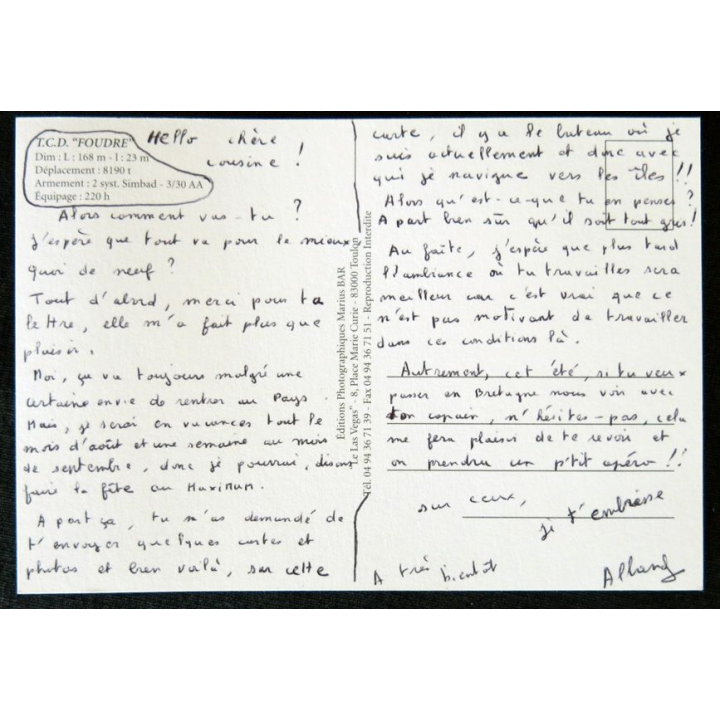 T.C.D. "FOUDRE"
Dim : L : 168 m - l : 23 m
Déplacement : 8190 t
Armement : 2 syst. Simbad - 3/30 AA
Équipage : 220 h
Hello chère
cousine !
Alors comment vas-tu ?
J'espère que tout va pour le mieux
quoi de neuf ?
Tout d'abord, merci pour ta
lettre, elle m'a fait plus que
plaisir.
Moi, ça va toujours malgré une
certaine envie de rentrer au Pays.
Mais, je serai en vacances tout le
mois d'août et une semaine au mois
de septembre, donc je pourrai, disons
faire la fête au Maximum.
A part ça, tu m'as demandé de
t'envoyer quelques cartes et
photos et bien voilà, sur cette
Editions Photographiques Marius BAR
"Le Las Vegas" - 8, Place Marie Curie - 83000 Toulon
Tél. 04 94 36 71 39 - Fax 04 94 36 71 51 - Reproduction Interdite
carte, il y a le bateau où je
suis actuellement et donc avec
qui je navigue vers les îles !!
Alors qu'est-ce-que tu en penses ?
A part bien sûr qu'il soit tout gris !
Au faîte, j'espère que plus tard
l'ambiance où tu travailles sera
meilleur car c'est vrai que ce
n'est pas motivant de travailler
dans ces conditions là.
Autrement, cet été, si tu veux
passer en Bretagne nous voir avec
ton copain, n'hésites-pas, cela
me fera plaisir de te revoir et
on prendra un p'tit apéro !!
sur ceux,
je t'embrasse
A très bientôt